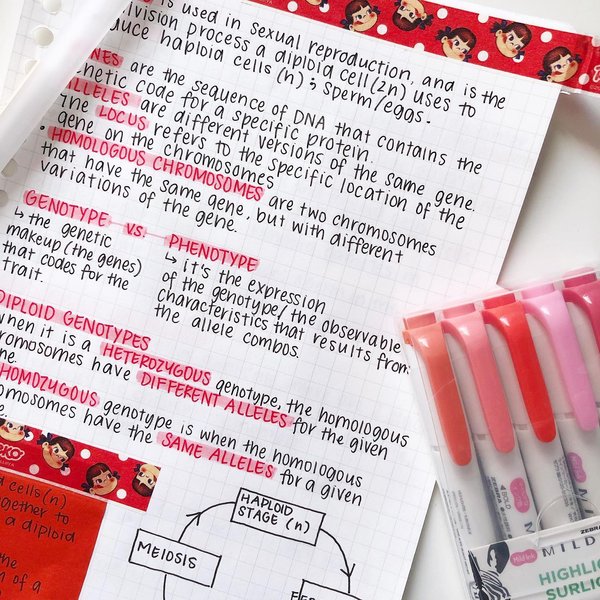 is used in sexual reproduction, and is the
division process a diploid cell (2n) uses to
duce haploid cells (n) ; sperm/eggs.
NES are the sequence of DNA that contains the
genetic code for a specific protein.
ALLELES are different versions of the same gene.
The LOCUS refers to the specific location of the
gene on the chromosomes
• HOMOLOGOUS CHROMOSOMES are two chromosomes
that have the same gene, but with different
variations of the gene.
GENOTYPE vs. PHENOTYPE
↳ the genetic
makeup (the genes)
that codes for the
trait.
↳ it's the expression
of the genotype/the observable
characteristics that results from
the allele combos.
DIPLOID GENOTYPES
when it is a HETEROZYGOUS genotype, the homologous
romosomes have DIFFERENT ALLELES for the given
ne.
HOMOZYGOUS genotype is when the homologous
omosomes have the SAME ALLELES for a given
e.
HAPLOID
STAGE (n)
MEIOSIS
cells (n)
ogether to
a diploid
the
n of a
BOLD
Mildink
ZEBRA
Mildink
MILD
HIGHLIG
SURLIG